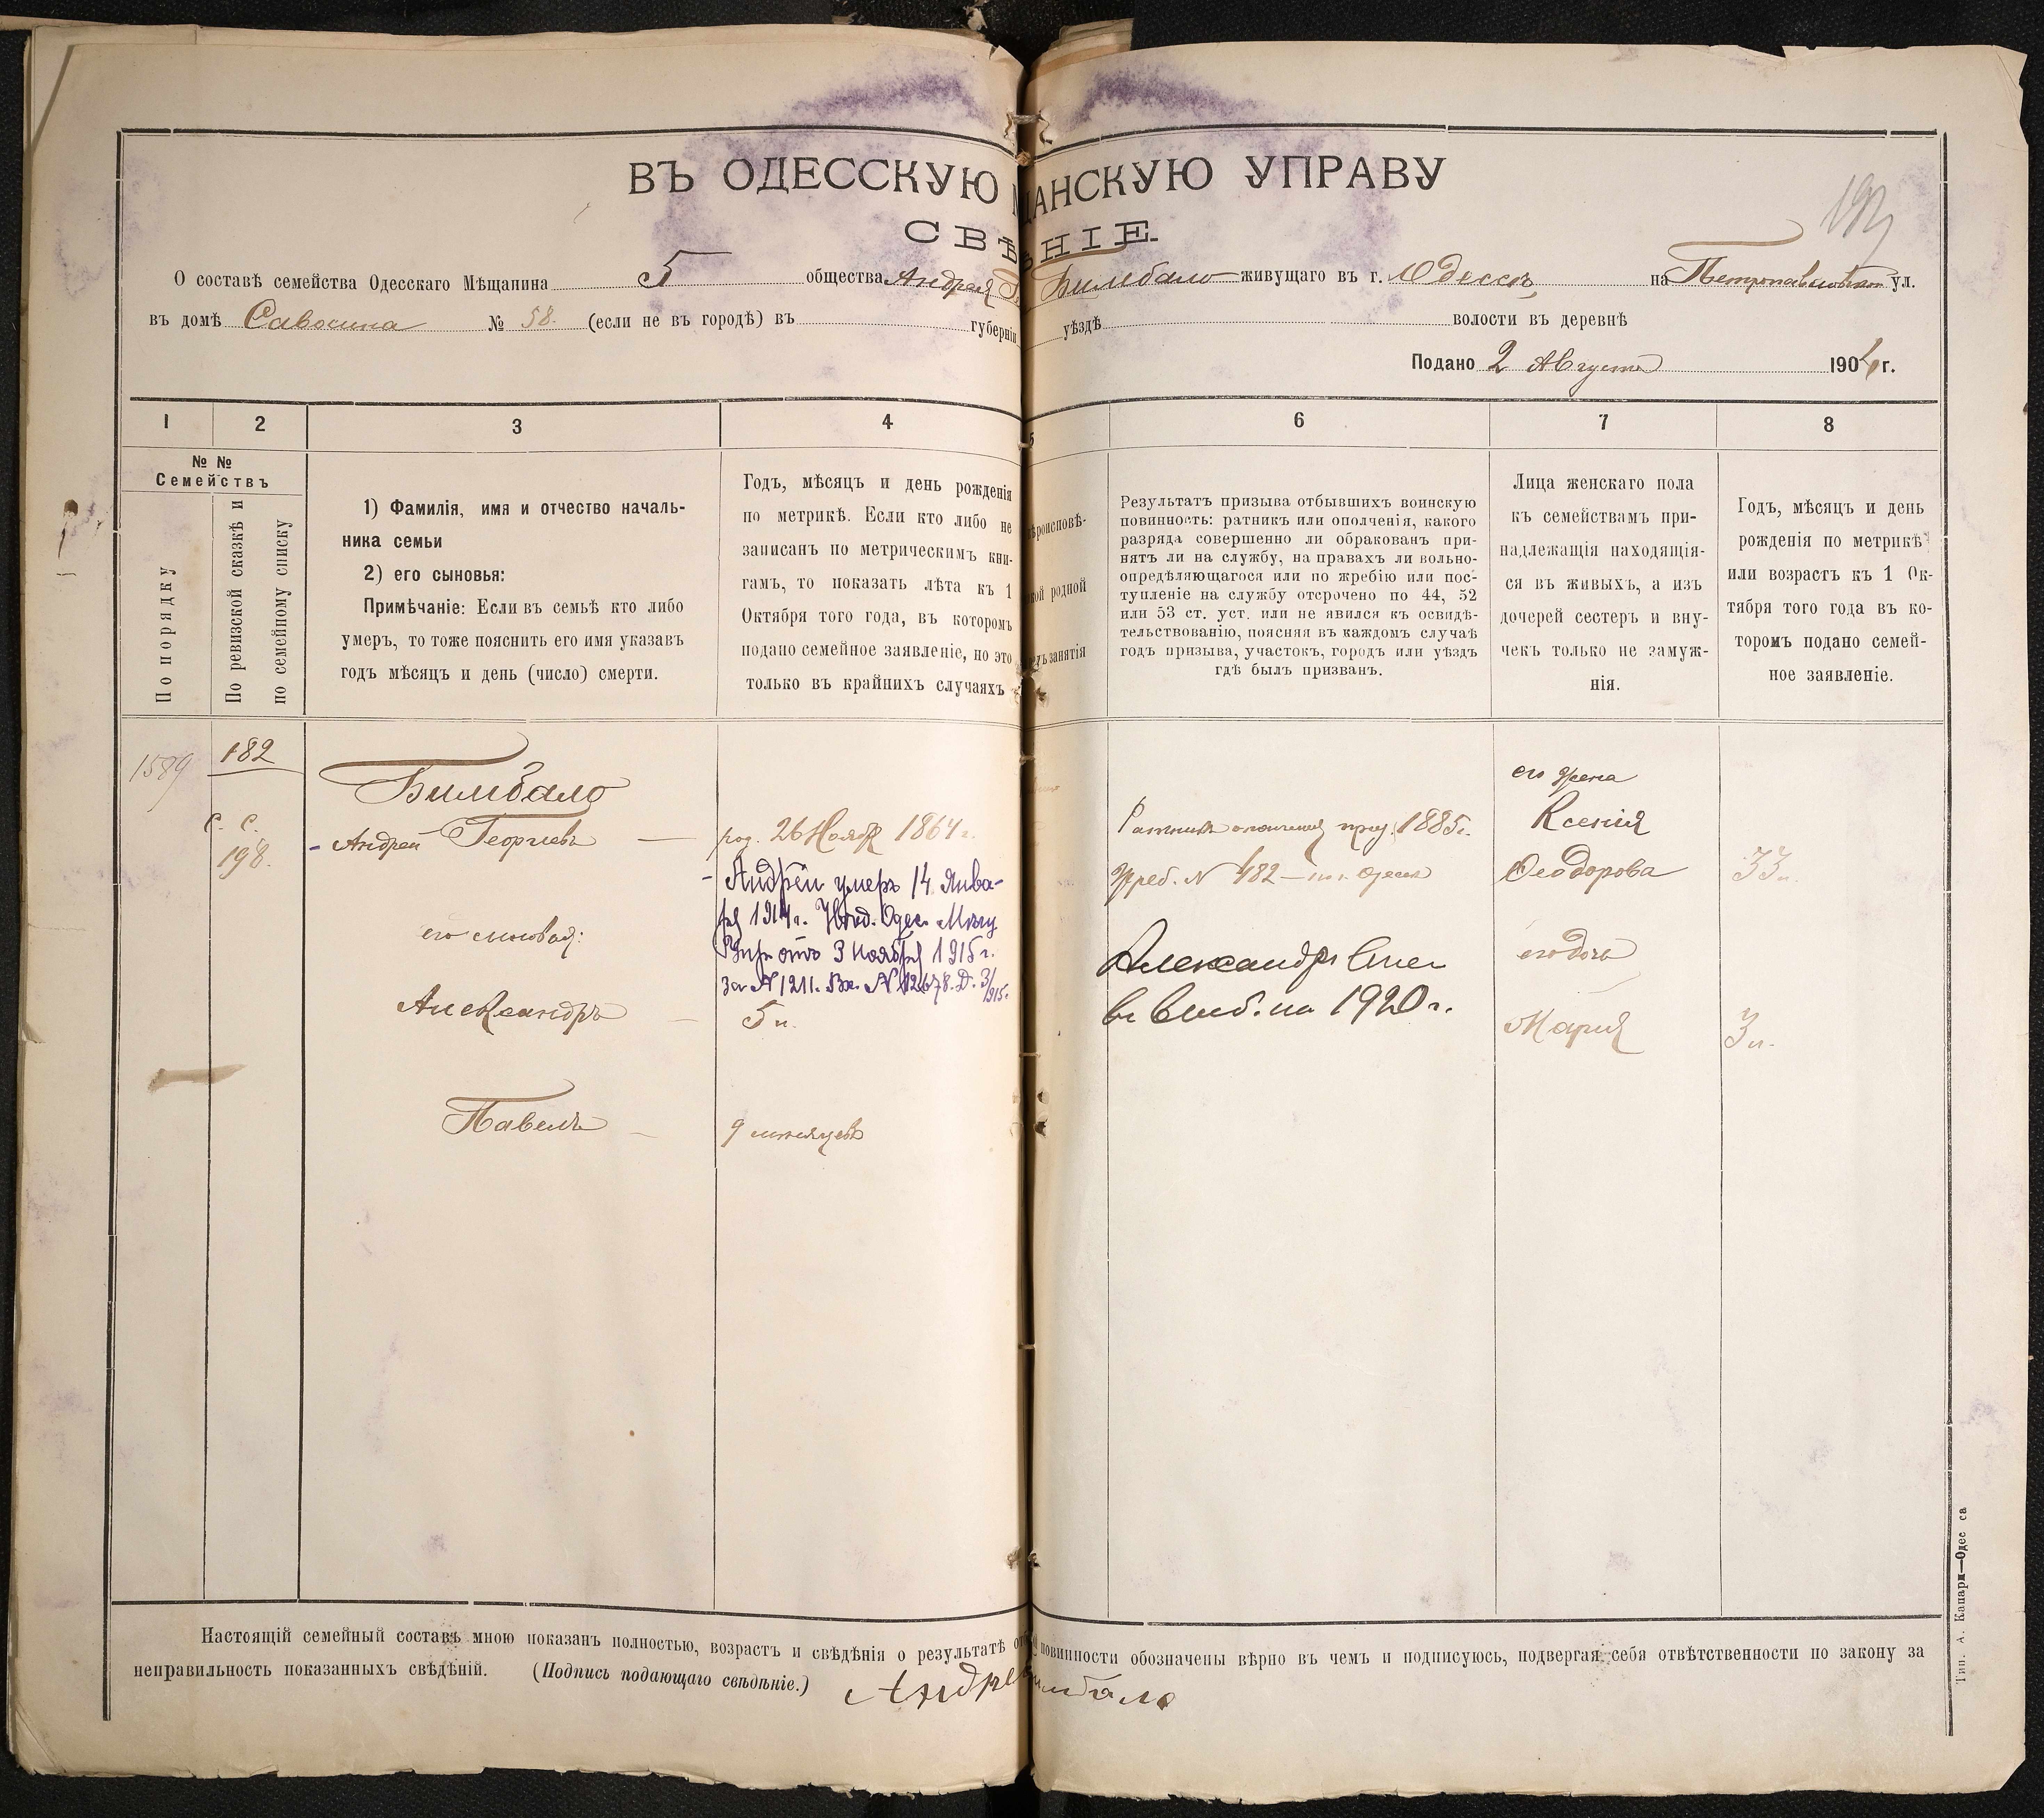 ВЪ ОДЕССКУЮ ЩАНСКУЮ УПРАВУ
СВѢ НІЕ.
О составѣ семейства Одесскаго Мѣщанина 5 общества Андрея Бимбало живущаго въ г. Одессѣ на Петропавловской ул.
въ домѣ Савосина № 58. (если не въ городѣ) въ губерніи уѣздѣ волости въ деревнѣ
Подано 2 Августа 190 г.
1 2 3 4 5 6 7 8
№ №
Семействъ
По порядку
По ревизской сказкѣ и
по семейному списку
1) Фамилія, имя и отчество началь-
ника семьи
2) его сыновья:
Примѣчаніе: Если въ семьѣ кто либо
умеръ, то тоже пояснить его имя указавъ
годъ мѣсяцъ и день (число) смерти.
Годъ, мѣсяцъ и день рожденія
по метрикѣ. Если кто либо не
записанъ по метрическимъ кни-
гамъ, то показать лѣта къ 1
Октября того года, въ которомъ
подано семейное заявленіе, но это
только въ крайнихъ случаяхъ
ѣроисповѣ-
кой родной
занятія
Результатъ призыва отбывшихъ воинскую
повинность: ратникъ или ополченія, какого
разряда совершенно ли обракованъ при-
нятъ ли на службу, на правахъ ли вольно-
опредѣляющагося или по жребію или пос-
тупленіе на службу отсрочено по 44, 52
или 53 ст. уст. или не явился къ освидѣ-
тельствованію, поясняя въ каждомъ случаѣ
годъ призыва, участокъ, городъ или уѣздъ
гдѣ былъ призванъ.
Лица женскаго пола
къ семействамъ при-
надлежащія находящія-
ся въ живыхъ, а изъ
дочерей сестеръ и вну-
чекъ только не замуж-
нія.
Годъ, мѣсяцъ и день
рожденія по метрикѣ
или возрастъ къ 1 Ок-
тября того года въ ко-
торомъ подано семей-
ное заявленіе.
1589
182
С. С.
198.
Бимбало
Андрей Георгіевъ
его сыновья:
Александръ
Павелъ
род. 26 Ноября 1864 г.
Андрей умеръ 14 Янва-
ря 1914 г. Увѣд. Одес.
отъ 3 Ноября 1915 г.
за № 1211. Вх. № 12678. Д. 3/915.
5 л.
9 мѣсяцевъ
Ратникъ ополченія приз. 1885 г.
Жреб. № 482 — по г. Одессѣ
Александръ
1920 г.
его жена
Ксенія
Ѳеодорова
его дочь
Марія
33 л.
3 л.
Настоящій семейный составъ мною показанъ полностью, возрастъ и свѣдѣнія о результатѣ повинности обозначены вѣрно въ чемъ и подписуюсь, подвергая себя отвѣтственности по закону за
неправильность показанныхъ свѣдѣній. (Подпись подающаго свѣдѣніе.) Андрей Бимбало
Тип. А. Капари—Одесса